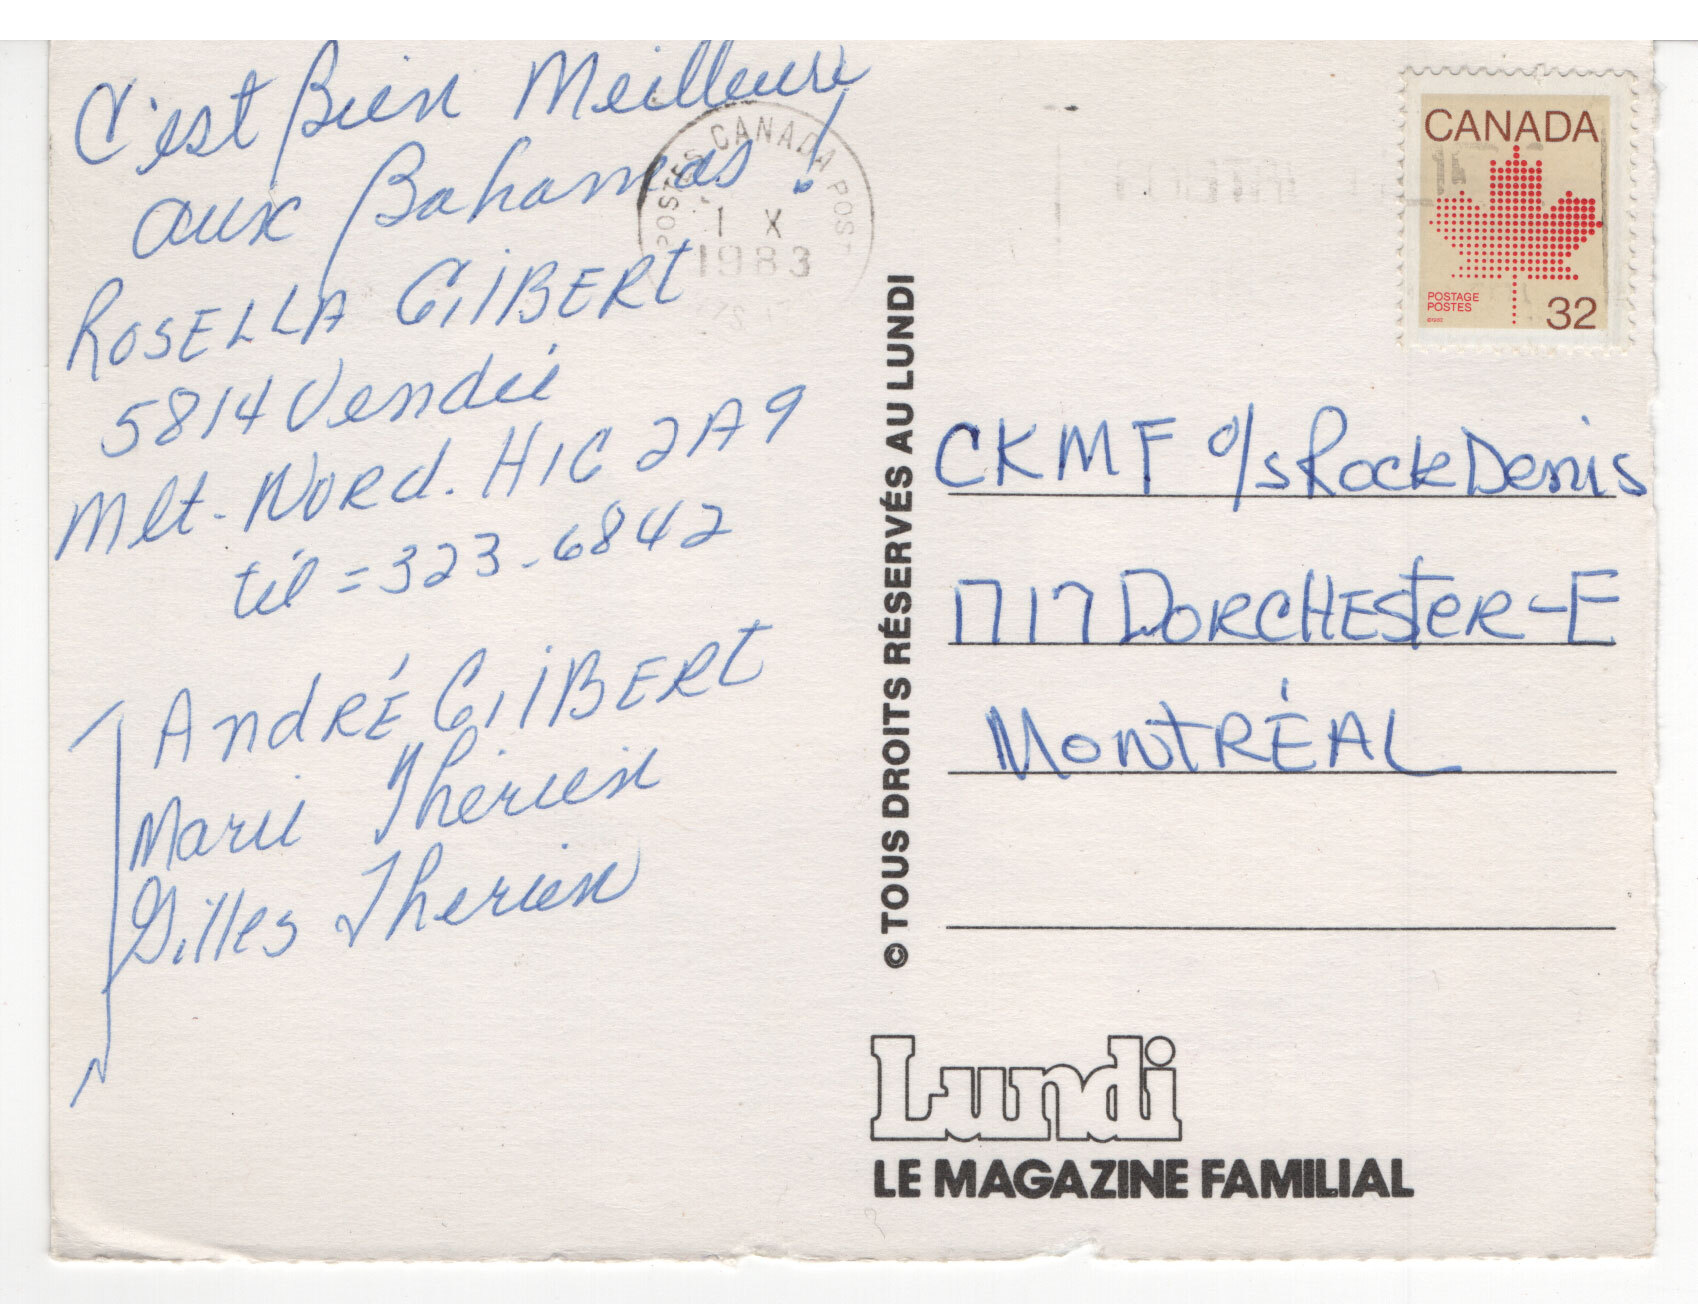 C'est Bien Meilleure
aux Bahamas!
ROSELLA GILBERT
5814 Vendée
Mlt-NORd. H1G 2A9
tél = 323-6842
ANdRÉ GILBERT
Marie Thérien
Gilles Therien
POSTES CANADA POST
1 X
1983
CANADA
POSTAGE
POSTES
32
© TOUS DROITS RÉSERVÉS AU LUNDI
CKMF o/s Rock Denis
1717 DORCHESTER-E
MONTRÉAL
Lundi
LE MAGAZINE FAMILIAL